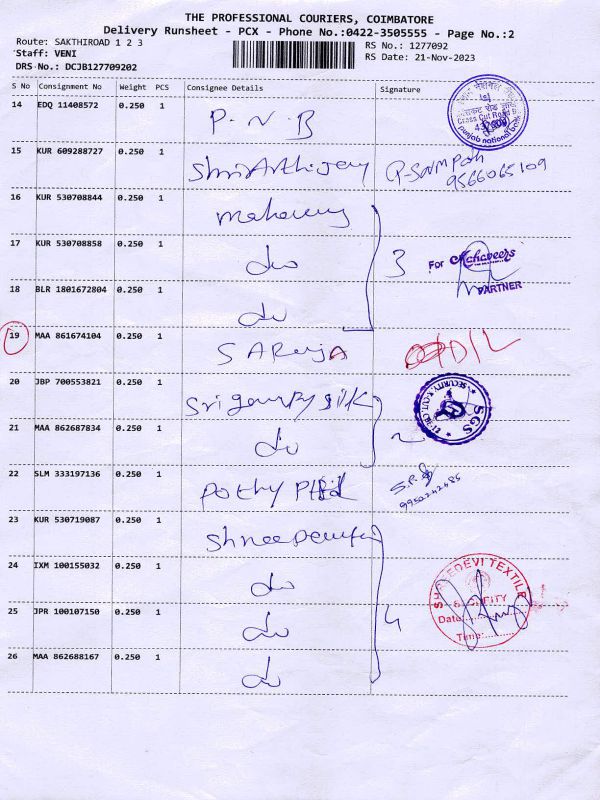 THE PROFESSIONAL COURIERS, COIMBATORE
Delivery Runsheet - PCX - Phone No.:0422-3505555 - Page No.:2
Route: SAKTHIROAD 1 2 3
RS No.: 1277092
Staff: VENI
RS Date: 21-Nov-2023
DRS No.: DCJB127709202
S No Consignment No Weight PCS Consignee Details Signature
14 EDQ 11408572 0.250 1 P.N.B
Cross Cut Road
punjab national bank
15 KUR 609288727 0.250 1
9566065109
16 KUR 530708844 0.250 1
17 KUR 530708858 0.250 1 do 3 For Mahaveers
PARTNER
18 BLR 1801672804 0.250 1 do
19 MAA 861674104 0.250 1 SAROJA D/L
20 JBP 700553821 0.250 1 Sri gowry silk
SECURITY SGS
21 MAA 862687834 0.250 1 do 2
22 SLM 333197136 0.250 1 Pothy
9950242485
23 KUR 530719087 0.250 1 Shreedevi
24 IXM 100155032 0.250 1 do
SHREEDEVI TEXTILE
SECURITY
Date:
Time:
25 JPR 100107150 0.250 1 do 4
26 MAA 862688167 0.250 1 do